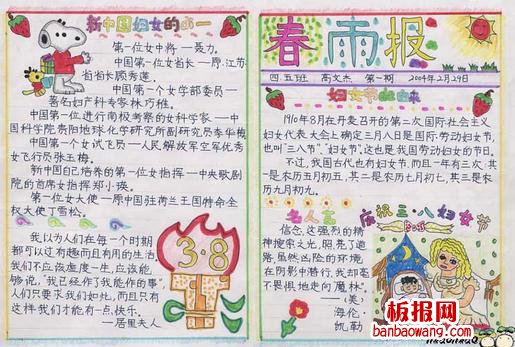 新中国妇女的第一
第一位女中将—聂力。
中国第一位女省长—原江苏
省省长顾秀莲。
中国第一个女学部委员—
著名妇产科专家林巧稚。
中国第一位进行南极考察的女科学家—中
国科学院贵阳地球化学研究所副研究员李华梅
中国第一个女试飞员—人民解放军空军优秀
女飞行员张玉梅。
新中国自己培养的第一位女指挥—中央歌剧
院的首席女指挥郑小瑛。
第一位女大使—原中国驻荷兰王国特命全
权大使丁雪松。
我以为人们在每一个时期
都可以过有趣而且有用的生活。
我们不应该虚度一生,应该能
够说,"我已经作了我能作的事",
人们只要求我们如此,而且只有
这样我们才能有一点快乐。
—居里夫人
3·8
春雨报
四.五班 高文杰 第一期 2004年2月29日
妇女节的由来
1910年8月在丹麦召开的第二次国际社会主义
妇女代表大会上确定三月八日是国际劳动妇女节,
也叫"三八节","妇女节",这也是我国劳动妇女的节日。
不过,我国古代也有妇女节,而且一年有三次:其
一是农历五月初五,其二是农历七月初七,其三是农
历九月初九。
名人言
信念,这强烈的精
神搜索之光,照亮了道
路,虽然凶险的环境
在阴影中潜行,我却毫
不畏惧地走向魔林。
—(美)
海伦·
凯勒
庆祝三·八妇女节
板报网
banbaowang.com